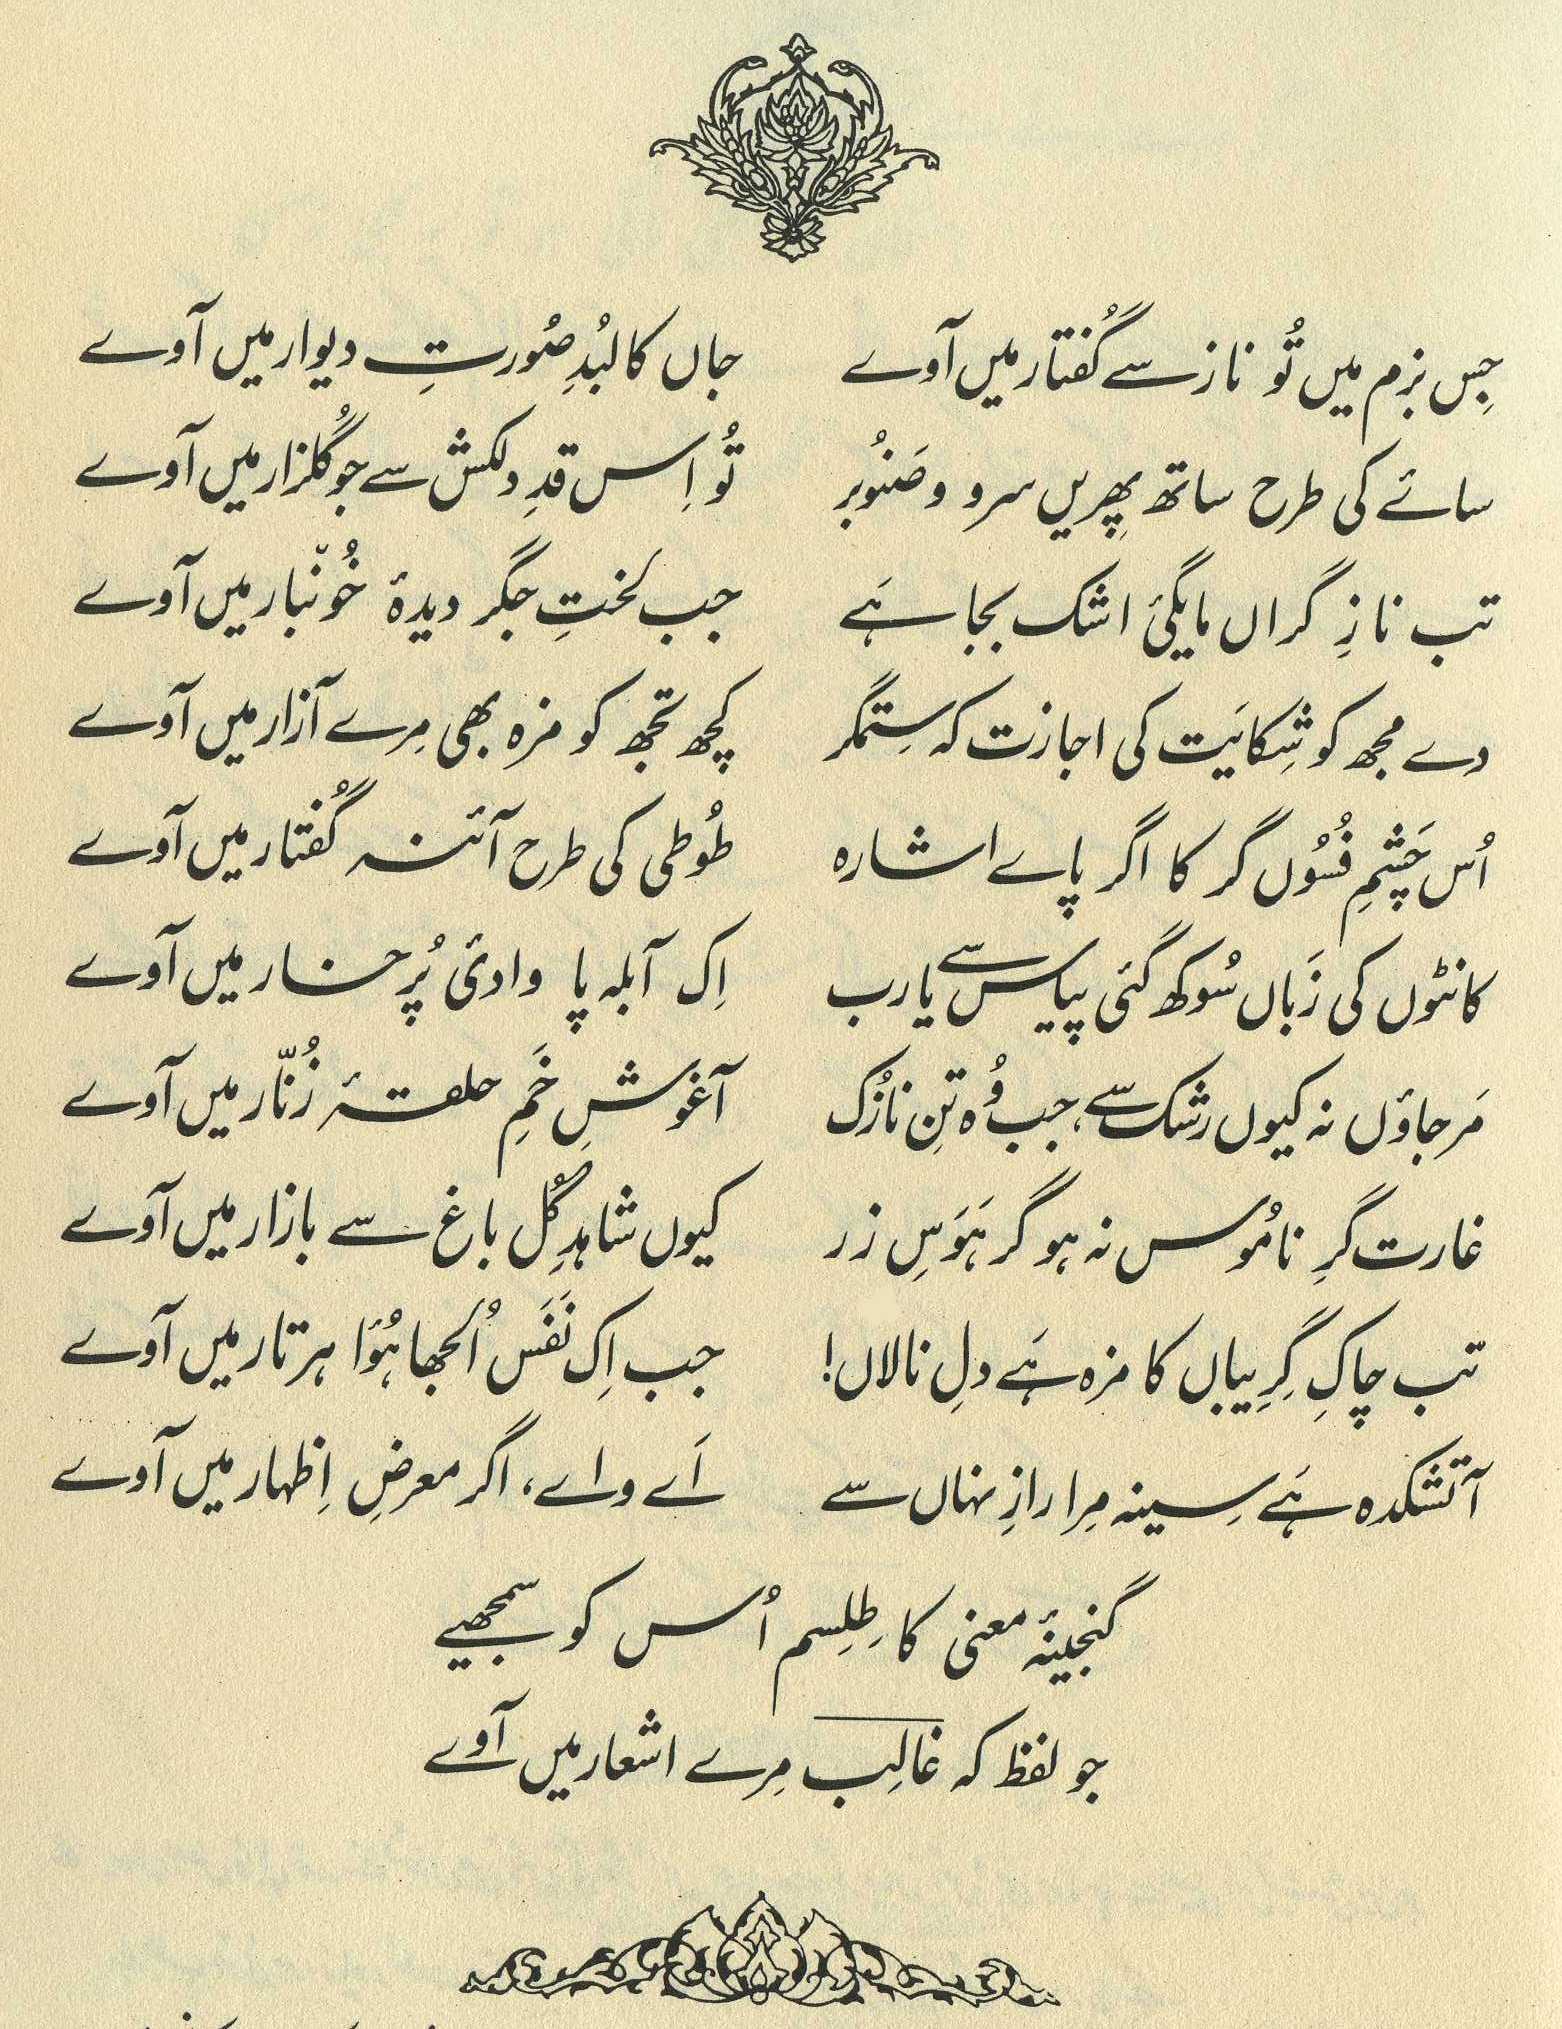 جِس بزم میں تُو ناز سے گُفتار میں آوے
جاں کالبُدِ صُورتِ دیوار میں آوے
سائے کی طرح ساتھ پِھریں سرو و صَنُوبر
تُو اِس قدِ دلکش سے جو گُلزار میں آوے
تب نازِ گراں مایگیٔ اشک بجا ہَے
جب لَختِ جگر دیدۂ خُونّبار میں آوے
دے مجھ کو شِکایَت کی اجازت کہ سِتمگر
کچھ تجھ کو مزہ بھی مِرے آزار میں آوے
اُس چَشمِ فسُوں گر کا اگر پاے اشارہ
طُوطی کی طرح آئنہ گُفتار میں آوے
کانٹوں کی زَباں سُوکھ گئی پیاس سے یارب
اِک آبلہ پا وادیٔ پُرخار میں آوے
مَرجاؤں نہ کیوں رشک سے، جب وُہ تنِ نازُک
آغوشِ خَمِ حلقۂ زُنّار میں آوے
غارت گرِ نامُوس نہ ہو گر ہَوَسِ زر
کیوں شاہدِ گُل باغ سے بازار میں آوے
تب چاکِ گرِیباں کا مزہ ہَے دلِ نالاں!
جب اِک نَفَس اُلجھا ہُوَا ہر تار میں آوے
آتشکدہ ہَے سِینہ مِرا رازِ نہاں سے
اَے واے، اگر معرضِ اِظہار میں آوے
گنجینۂ معنی کا طِلِسم اُس کو سمجھیے
جو لفظ کہ غالِب مِرے اشعار میں آوے